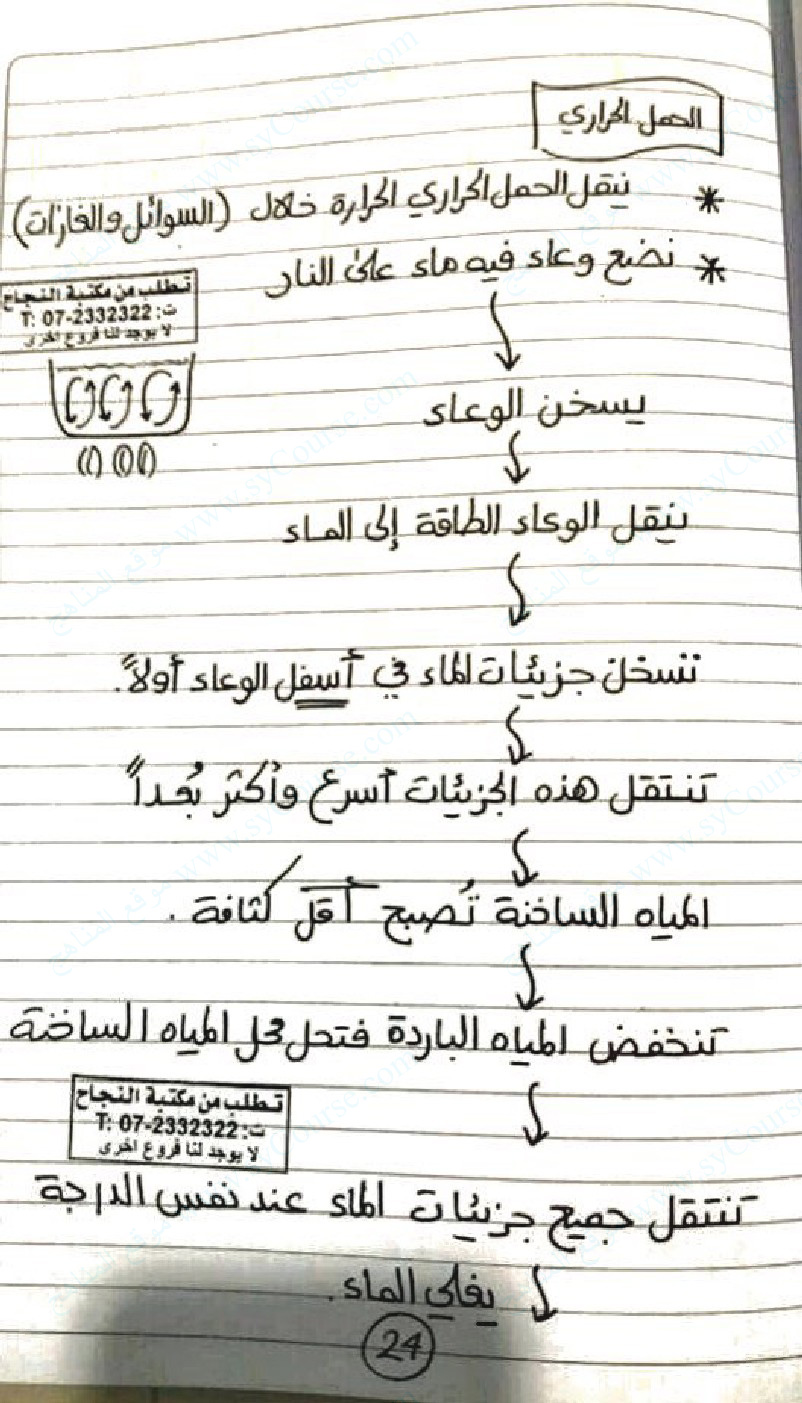 الحمل الحراري
* ينقل الحمل الحراري الحرارة خلال (السوائل والغازات)
* نضع وعاء فيه ماء على النار
تطلب من مكتبة النجاح
ت: T: 07-2332322
لا يوجد لنا فروع اخرى
يسخن الوعاء
ينقل الوعاء الطاقة إلى الماء
تتسخن جزيئات الماء في أسفل الوعاء أولاً.
تنتقل هذه الجزيئات أسرع وأكثر بُعداً
المياه الساخنة تُصبح أقل كثافة.
تنخفض المياه الباردة فتحل محل المياه الساخنة
تطلب من مكتبة النجاح
ت: T: 07-2332322
لا يوجد لنا فروع اخرى
تنتقل جميع جزيئات الماء عند نفس الدرجة
يغلي الماء.
24
موقع المناهج www.syCourse.com